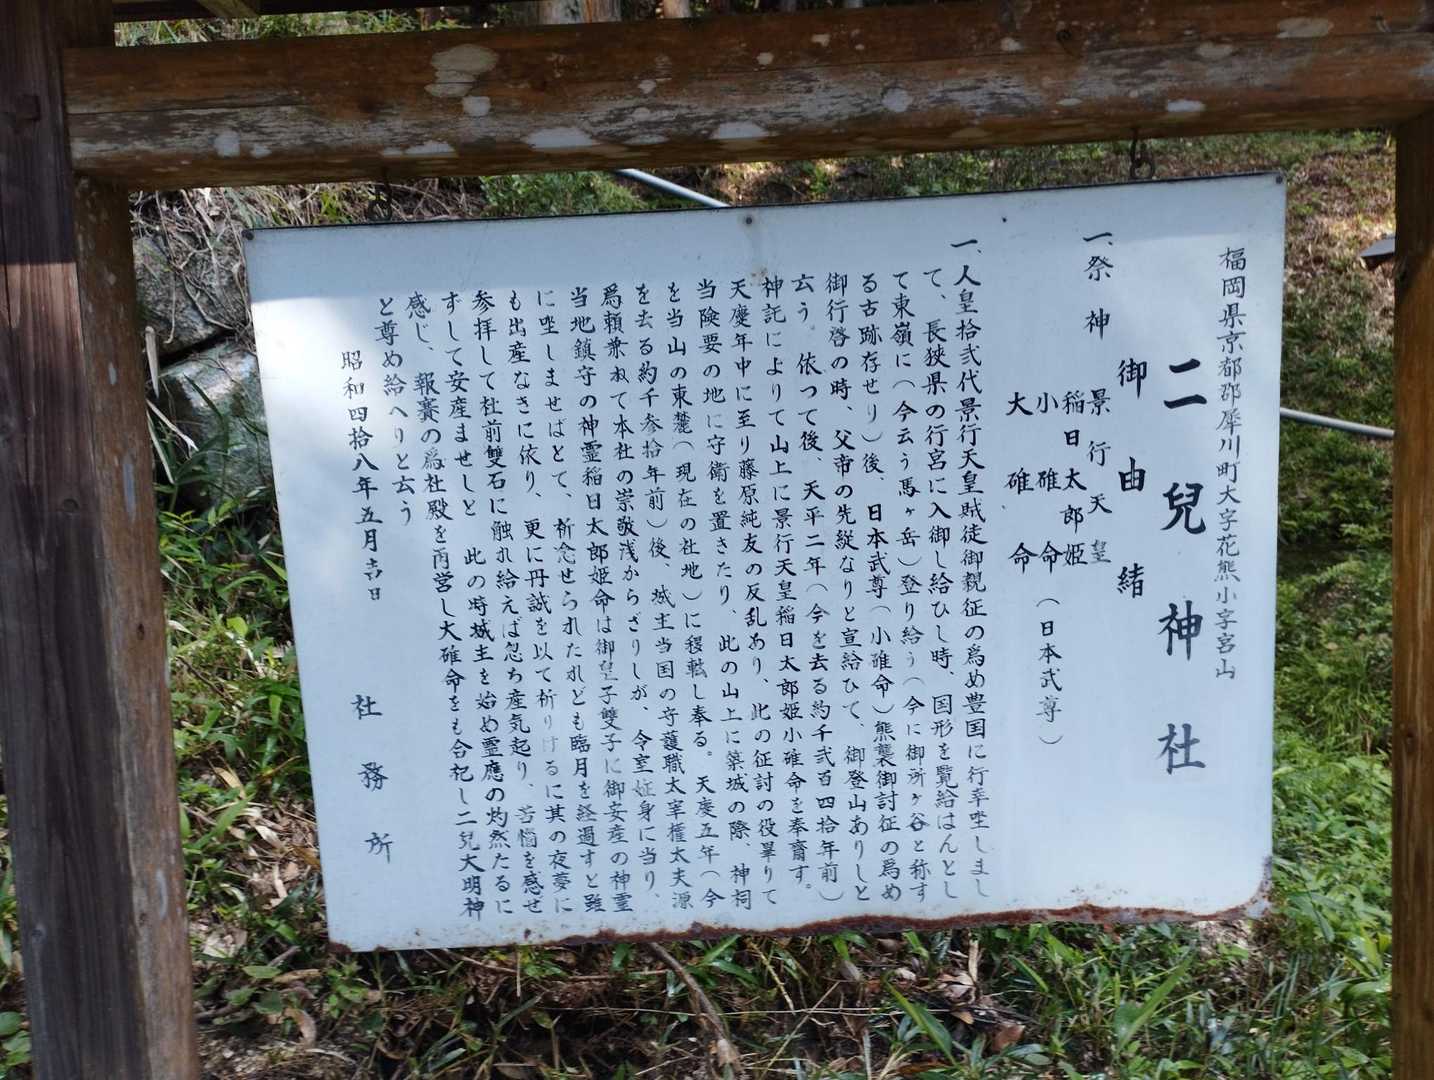 福岡県京都郡犀川町大字花熊小字宮山
二兒神社
御由緒
一、祭神 景行天皇
稲日太郎姫
小碓命(日本武尊)
大碓命
一、人皇拾弐代景行天皇賊徒御親征の爲め豊国に行幸唑しまし
て、長狭県の行宮に入御し給ひし時、国形を覧給はんとし
て東嶺に(今云う馬ヶ岳)登り給う(今に御所ヶ谷と称す
る古跡存せり)後、日本武尊(小碓命)熊襲御討征の爲め
御行啓の時、父帝の先縦なりと宣給ひて、御登山ありしと
云う。依つて後、天平二年(今を去る約千弐百四拾年前)
神託によりて山上に景行天皇稲日太郎姫小碓命を奉齎す。
天慶年中に至り藤原純友の反乱あり、此の征討の役畢りて
当険要の地に守衛を置きたり、此の山上に築城の際、神祠
を当山の東麓(現在の社地)に移転し奉る。天慶五年(今
を去る約千参拾年前)後、城主当国の守護職太宰権太夫源
爲頼兼ねて本社の崇敬浅からざりしが、令室妊身に当り、
当地鎮守の神霊稲日太郎姫命は御皇子雙子に御安産の神霊
に唑しませばとて、祈念せられたれども臨月を経過すと雖
も出産なきに依り、更に丹誠を以て祈りけるに其の夜夢に
参拝して社前雙石に触れ給えば忽ち産気起り、苦悩を感せ
ずして安産ませしと 此の時城主を始め霊應の灼然たるに
感じ、報賽の爲社殿を再営し大碓命をも合祀し二兒大明神
と尊め給へりと云う
昭和四拾八年五月吉日 社務所